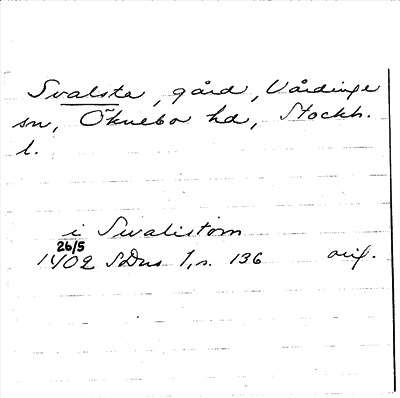 Svalsta, gård, Vårdinge
sn, Öknebo hd, Stockh.
l.
i Swalistom
26/5
1402 SDns 1, s. 136 orig.